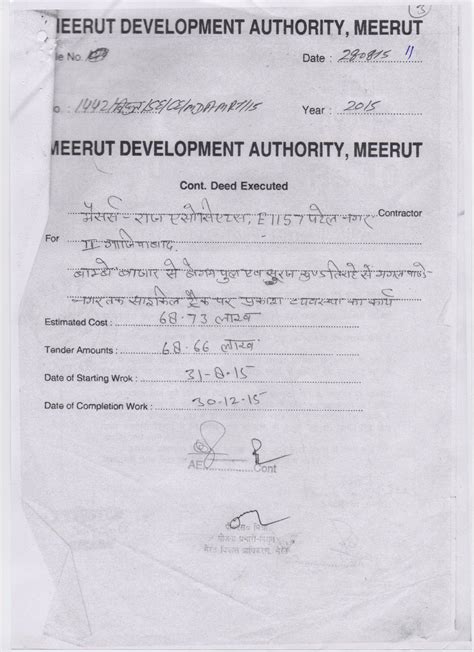 3
MEERUT DEVELOPMENT AUTHORITY, MEERUT
le No. Date : 280815 11
o. : 1442/विद्युत/SE/CE/MDA/MRT/15 Year : 2015
MEERUT DEVELOPMENT AUTHORITY, MEERUT
Cont. Deed Executed
मैसर्स - राज एसोसिएट्स, E1157 पटेल नगर Contractor
For II गाजियाबाद,
बाम्बे बाजार से पुल एवं सूरज कुण्ड तिराहे से
नगर तक साइकिल ट्रैक पर प्रकाश व्यवस्था का कार्य
Estimated Cost : 68.73 लाख
Tender Amounts : 68.66 लाख
Date of Starting Wrok : 31-8-15
Date of Completion Work : 30-12-15
AE Cont
मेरठ विकास प्राधिकरण, मेरठ